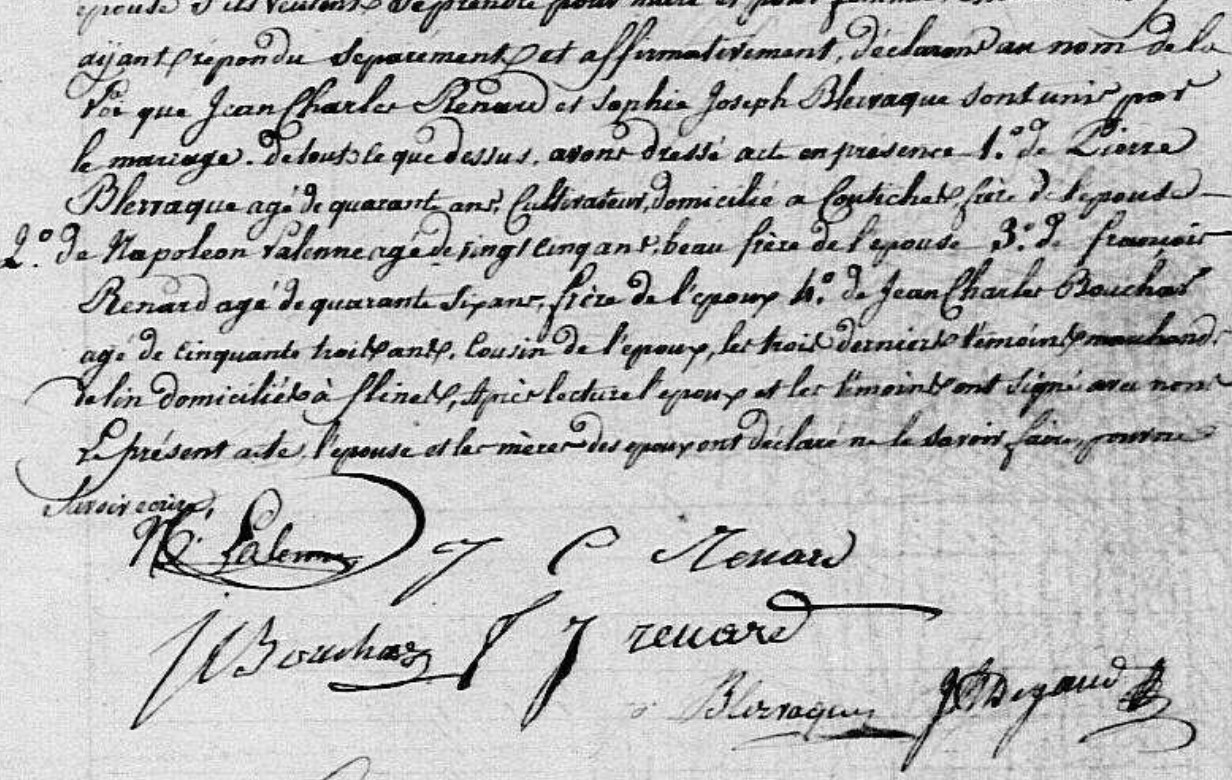 épouse s'ils veulent se prendre pour mari et pour femme,
aijant repondu separement et affirmativement, déclarons au nom de la
Loi que Jean Charles Renard et Sophie Joseph Blervaque sont unis par
le mariage. de tout ce que dessus, avons dressé acte en présence 1.° de Pierre
Blervaque agé de quarante ans, Cultivateur, domicilié a Coutiches, frère de l'epouse
2.° de Napoleon Lalenne agé de vingt cinq ans, beau frère de l'epouse 3.° de françois
Renard agé de quarante six ans, frère de l'epoux 4.° de Jean Charles Bouchar
agé de cinquante trois ans, Cousin de l'epoux, les trois derniers témoins marchands
de lin domiciliés à flines, Après lecture l'epoux et les témoins ont signé avec nous
le présent acte, l'épouse et les mères des epoux ont déclaré ne le savoir faire, pour ne
Savoir ecrire,
N. Lalenne J C Renard
J C Bouchar f J renard
Blervaque J Degand